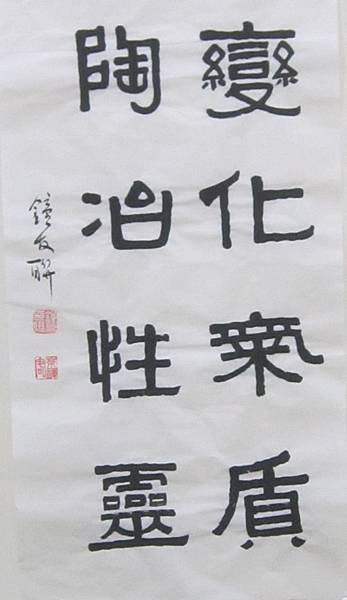 變化气質
陶冶性靈
鏡友聯